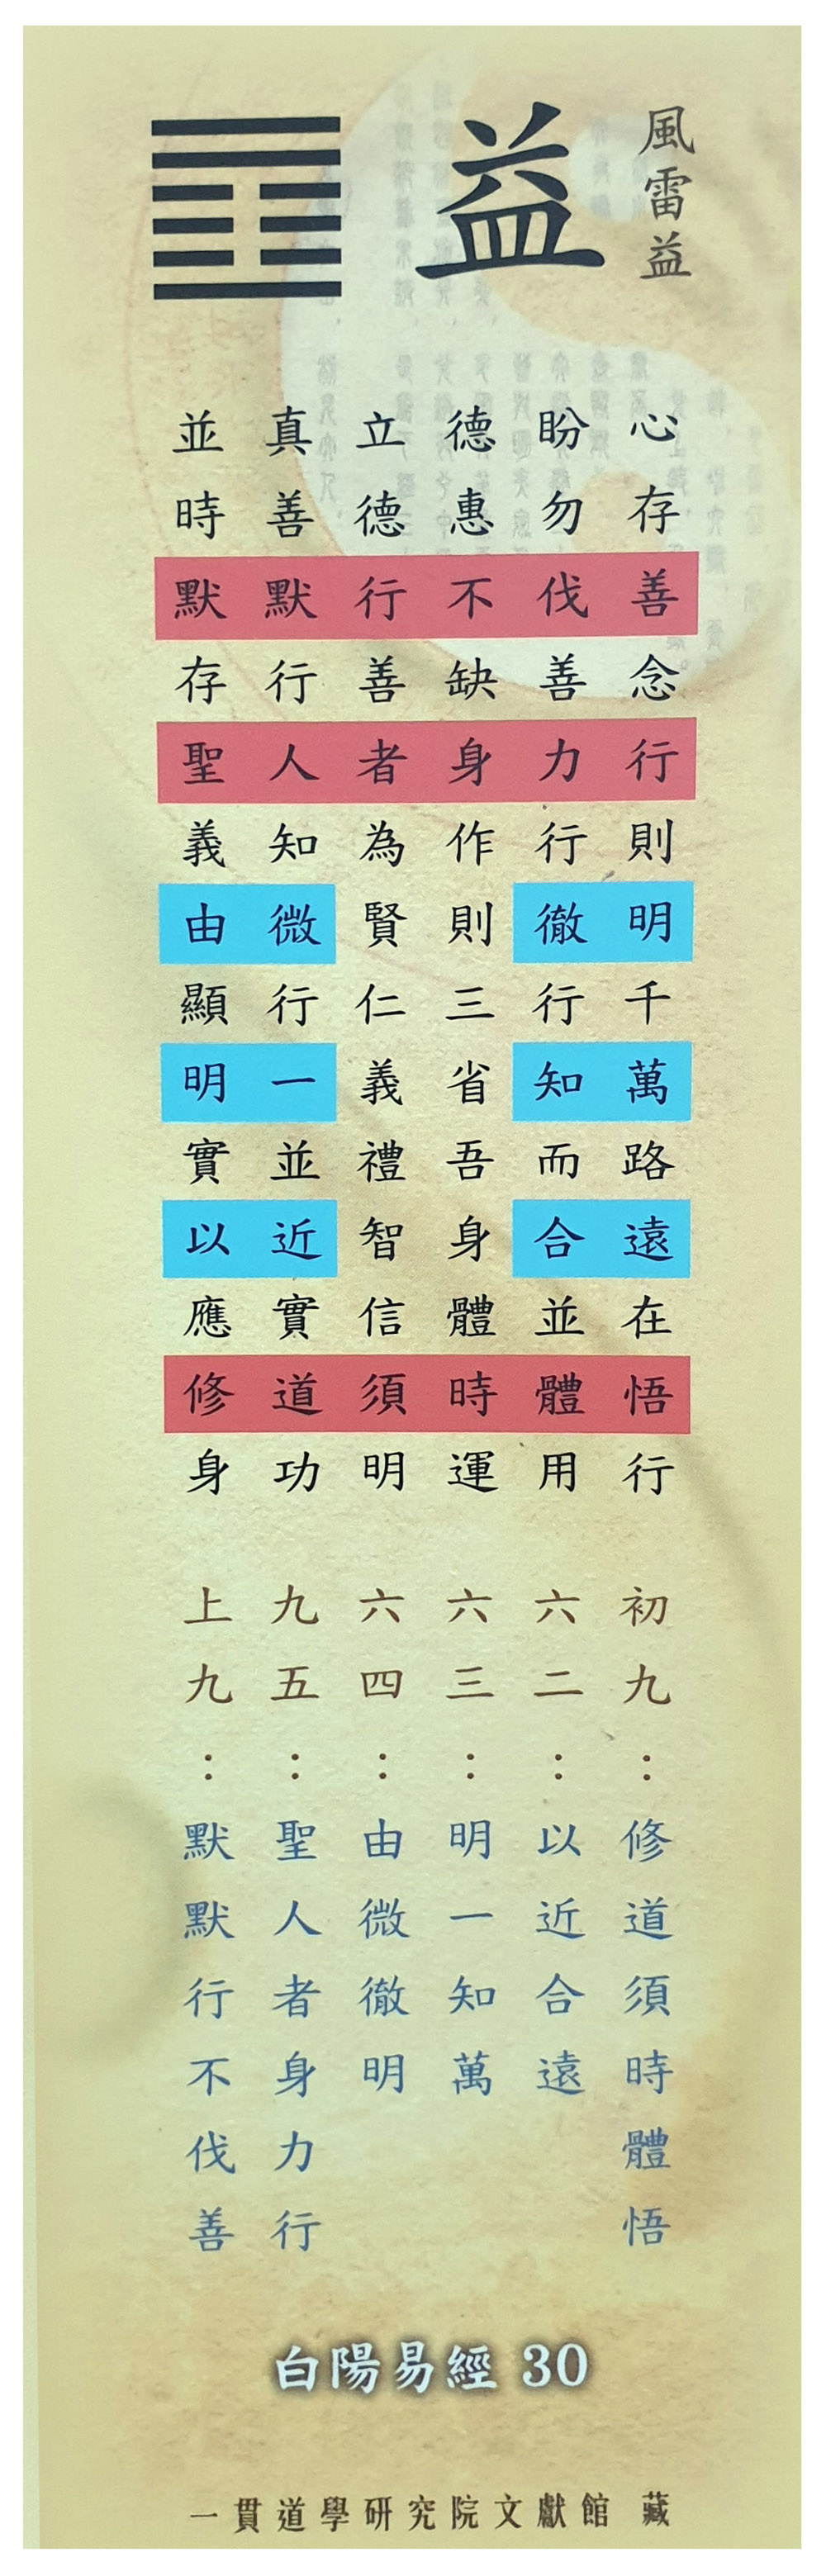 風雷益
益
心存善念行則明千萬路遠在悟行
盼勿伐善力行徹行知而合並體用
德惠不缺身作則三省吾身體時運
立德行善者為賢仁義禮智信須明
真善默行人知微行一並近實道功
並時默存聖義由顯明實以應修身
初九：修道須時體悟
六二：以近合遠
六三：明一知萬
六四：由微徹明
九五：聖人者身力行
上九：默默行不伐善
白陽易經 30
一貫道學研究院文獻館 藏